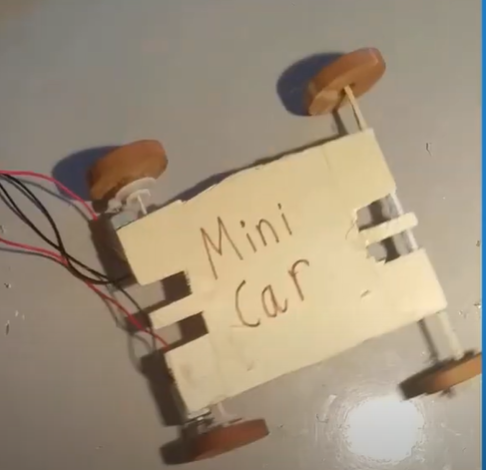 Mini
Car